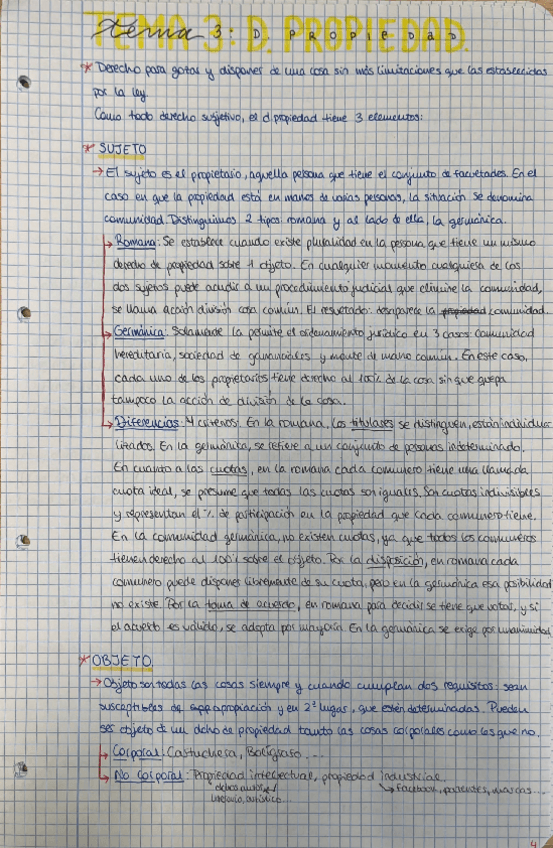 TEMA 3: D. PROPIEDAD.
tema 3: D. PROPIEDAD
* Derecho para gozar y disponer de una cosa sin más limitaciones que las establecidas
por la ley.
Como todo derecho subjetivo, el d propiedad tiene 3 elementos:
* SUJETO
→ El sujeto es el propietario, aquella persona que tiene el conjunto de facultades. En el
caso en que la propiedad está en manos de varias personas, la situación se denomina
comunidad. Distinguimos 2 tipos romana y al lado de ella, la germánica.
→ Romana: Se establece cuando existe pluralidad en la persona que tiene un mismo
derecho de propiedad sobre 1 objeto. En cualquier momento cualquiera de los
dos sujetos puede acudir a un procedimiento judicial que elimine la comunidad,
se llama acción división cosa común. El resultado: desaparece la propiedad comunidad.
→ Germánica: Solamente la permite el ordenamiento jurídico en 3 casos: comunidad
hereditaria, sociedad de gananciales y monte de mano común. En este caso,
cada uno de los propietarios tiene derecho al 100% de la cosa sin que quepa
tampoco la acción de división de la cosa.
→ Diferencias: 4 criterios. En la romana, los titulares se distinguen, están individua
lizados. En la germánica, se refiere a un conjunto de personas indeterminado.
En cuanto a las cuotas, en la romana cada comunero tiene una llamada
cuota ideal, se presume que todas las cuotas son iguales. Son cuotas indivisibles
y representan el % de participación en la propiedad que cada comunero tiene.
En la comunidad germánica, no existen cuotas, ya que todos los comuneros
tienen derecho al 100% sobre el objeto. Por la disposición, en romana cada
comunero puede disponer libremente de su cuota, pero en la germánica esa posibilidad
no existe. Por la toma de acuerdo, en romana para decidir se tiene que votar, y si
el acuerdo es válido, se adopta por mayoría. En la germánica se exige por unanimidad
* OBJETO
→ Objeto son todas las cosas siempre y cuando cumplan dos requisitos: sean
susceptibles de apropiación y en 2º lugar, que estén determinadas. Pueden
ser objeto de un dcho de propiedad tanto las cosas corporales como las que no.
→ Corporal: Cartuchera, Bolígrafo...
→ No corporal: Propiedad intelectual, propiedad industrial.
↳ Facebook, patentes, marcas...
4